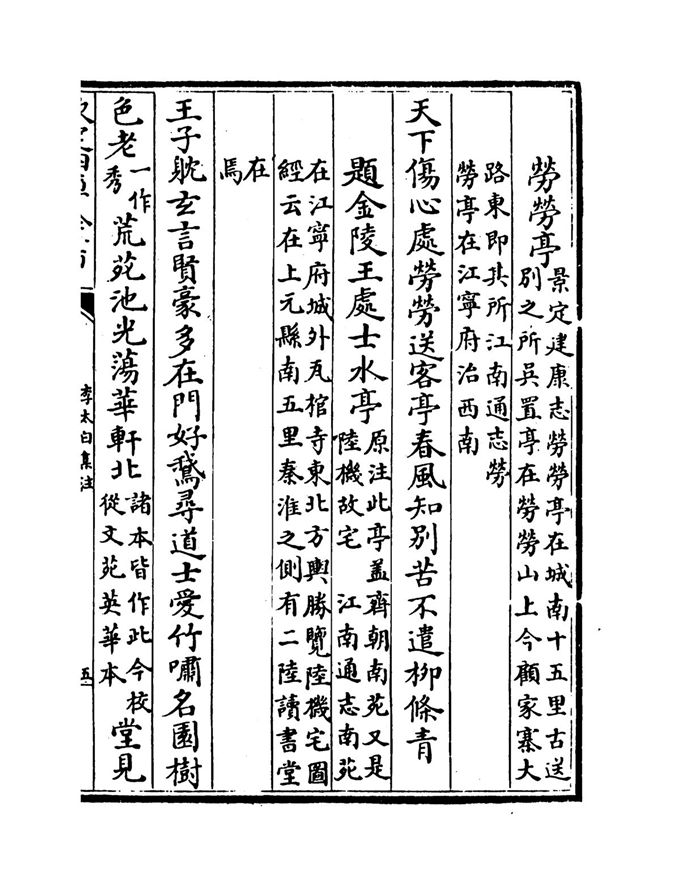 勞勞亭景定建康志勞勞亭在城南十五里古送
別之所吳置亭在勞勞山上今顧家寨大
路東即其所江南通志勞
勞亭在江寧府治西南
天下傷心處勞勞送客亭春風知別苦不遣柳條青
題金陵王處士水亭原注此亭蓋齊朝南苑又是
陸機故宅 江南通志南苑
在江寧府城外瓦棺寺東北方輿勝覽陸機宅圖
經云在上元縣南五里秦淮之側有二陸讀書堂
在
焉
王子躭玄言賢豪多在門好鵞尋道士愛竹嘯名園樹
色老一作
秀荒苑池光蕩華軒北諸本皆作此今校
從文苑英華本堂見
李太白集注
五